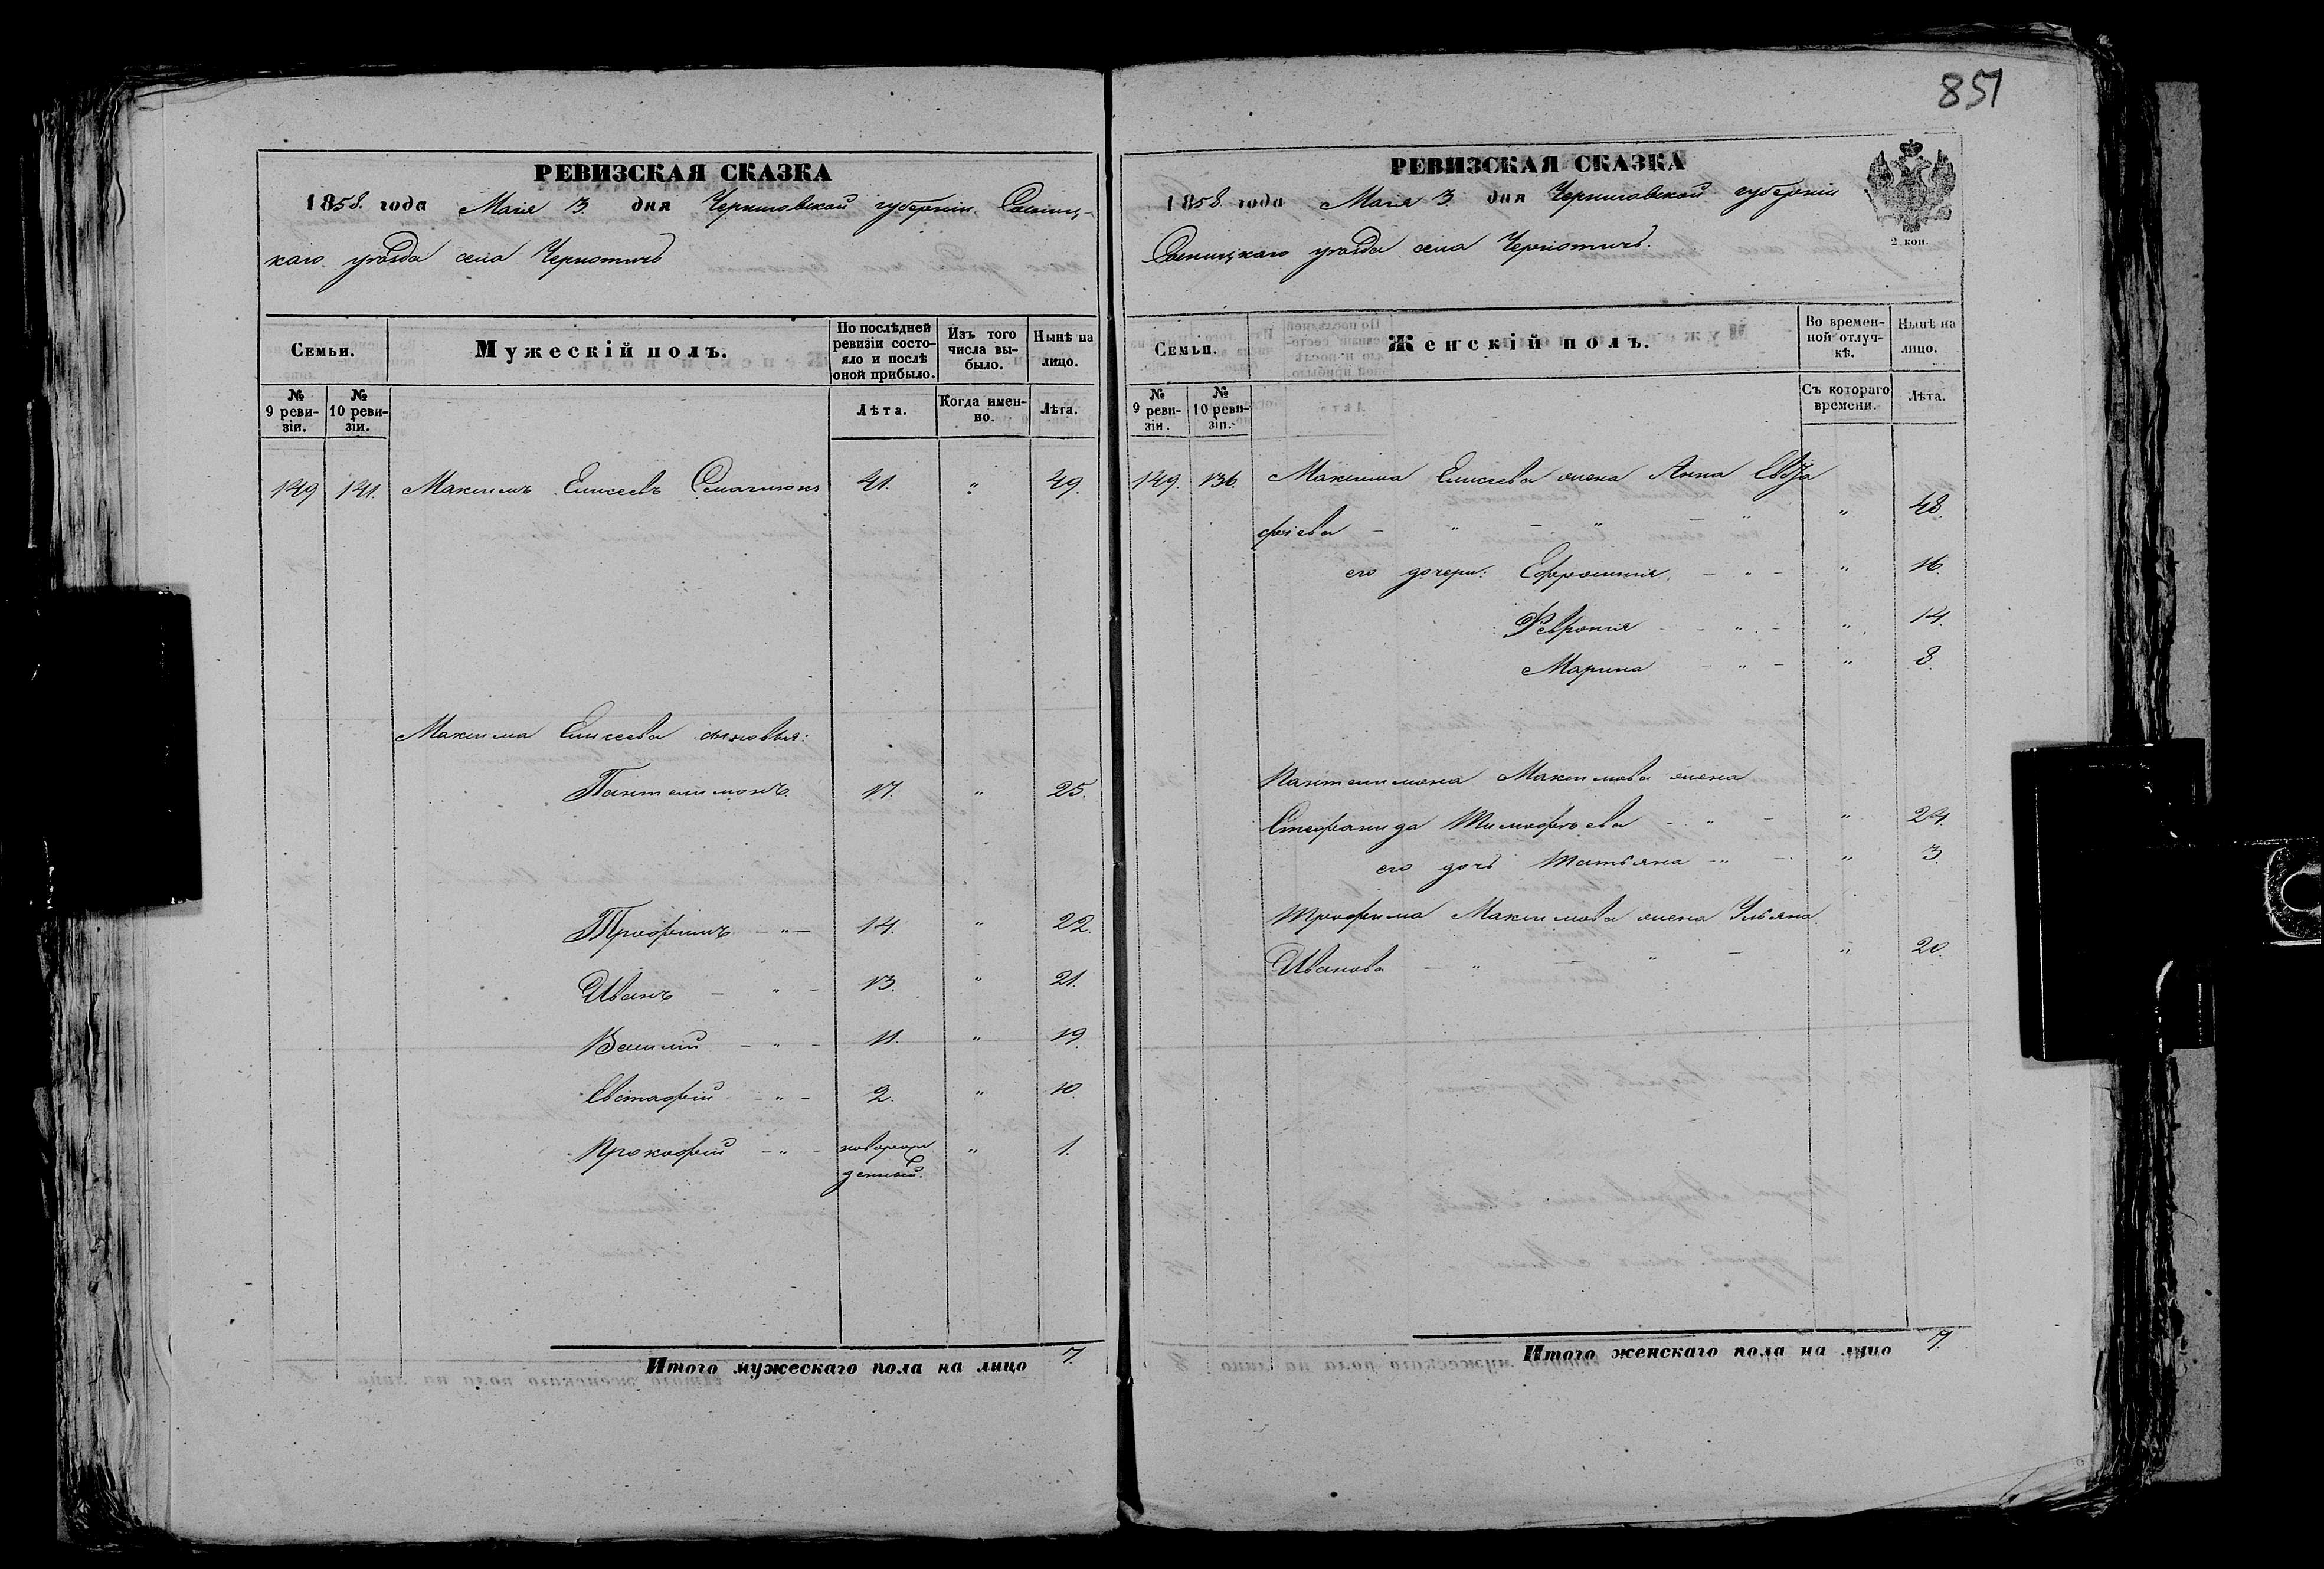 851
РЕВИЗСКАЯ СКАЗКА
1858. года Мая 3. дня Черниговской губерніи Сосниц-
каго уѣзда села Чернотичъ
Семьи.
Мужескій полъ.
По послѣдней ревизіи состояло и послѣ оной прибыло.
Изъ того числа выбыло.
Нынѣ на лицо.
№ 9 ревизіи.
№ 10 ревизіи.
Лѣта.
Когда именно.
Лѣта.
149 141. Максимъ Елисеевъ 41. " 49.
Максима Елисеева сыновья:
Пантелимонъ. 17. " 25.
Трофимъ - " - 14. " 22.
Иванъ - " - 13. " 21.
Василій - " - 11. " 19.
Евстафій - " - 2. " 10.
Прокофій - " - новорож " 1.
денный.
Итого мужескаго пола на лицо 7.
РЕВИЗСКАЯ СКАЗКА
1858 года Мая 3. дня Черниговской губерніи
Сосницкаго уѣзда села Чернотичъ.
2 коп.
Семьи.
Женскій полъ.
Во временной отлучкѣ.
Нынѣ на лицо.
№ 9 ревизіи.
№ 10 ревизіи.
Съ котораго времени.
Лѣта.
149. 136. Максима Елисеева жена Анна
" 48.
его дочери: Ефросинія - " - " 16.
Февронія - " - " 14.
Марина - " - " 8.
Пантелимона Максимова жена
Стефанида Тимофѣева - " - " 24.
его дочь Татьяна - " - " 3.
Трофима Максимова жена Ульяна
Иванова - " - " - " 20.
Итого женскаго пола на лицо 7.